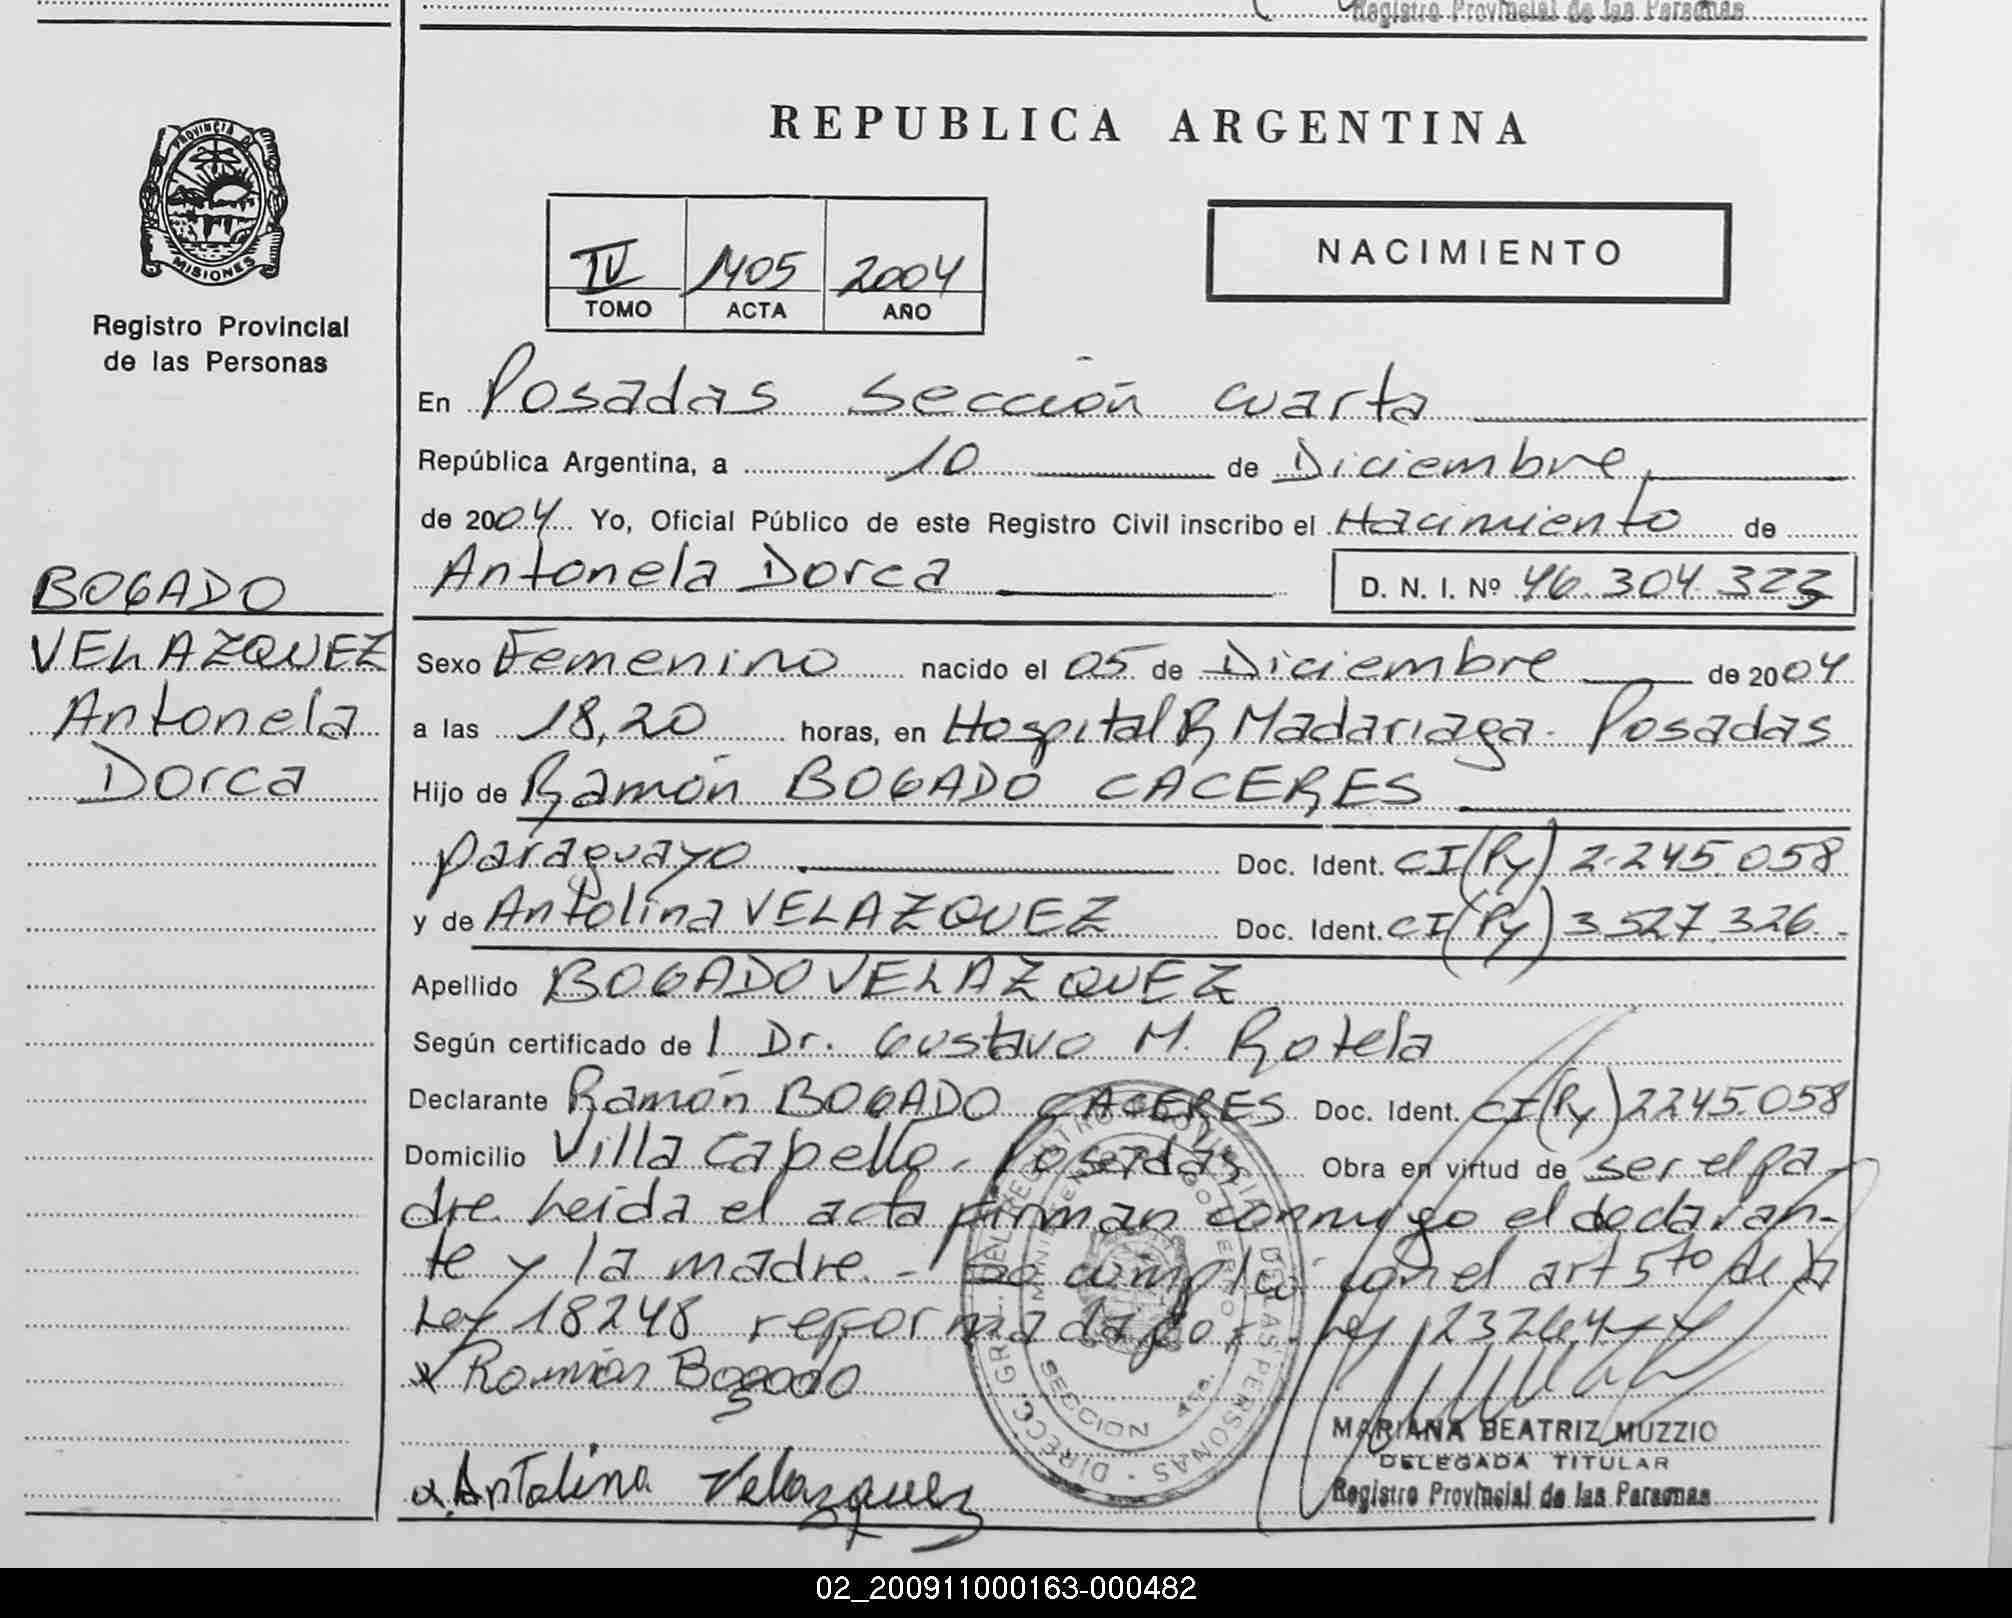 Registro Provincial de las Personas
REPUBLICA ARGENTINA
PROVINCIA DE
MISIONES
Registro Provincial
de las Personas
BOGADO
VELAZQUEZ
Antonela
Dorca
IV 1405 2004
TOMO ACTA AÑO
NACIMIENTO
En Posadas Sección cuarta
República Argentina, a 10 de Diciembre
de 2004 Yo, Oficial Público de este Registro Civil inscribo el Nacimiento de
Antonela Dorca D. N. I. Nº 46.304.323
Sexo Femenino nacido el 05 de Diciembre de 2004
a las 18,20 horas, en Hospital R Madariaga. Posadas
Hijo de Ramón BOGADO CACERES
paraguayo Doc. Ident. CI(Py) 2.245.058
y de Antolina VELAZQUEZ Doc. Ident. CI(Py) 3527.326.-
Apellido BOGADO VELAZQUEZ
Según certificado de l Dr. Gustavo M. Rotela
Declarante Ramón BOGADO CACERES Doc. Ident. CI(Py) 2245.058
Domicilio Villa Cabello. Posadas Obra en virtud de ser el pa-
dre. Leida el acta firman conmigo el declaran-
te y la madre.- Se cumplió con el art 5to de la
Ley 18248 reformada por Ley 23264
x Ramón Bogado
x Antolina Velazquez
DIRECC. GRAL. DEL REGISTRO PROVINCIAL DE LAS PERSONAS
MINISTERIO DE GOBIERNO
SECCION 4ta.
MARIANA BEATRIZ MUZZIO
DELEGADA TITULAR
Registro Provincial de las Personas
02_200911000163-000482